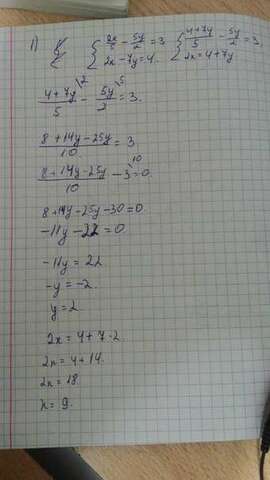 1) { 2x/5 - 5y/2 = 3 { (4+7y)/5 - 5y/2 = 3
2x - 7y = 4. 2x = 4 + 7y
1) (4+7y)/5 \2 - 5y/2 \5 = 3.
(8+14y-25y)/10 = 3.
(8+14y-25y)/10 - 3 \10 = 0.
8+14y-25y-30=0
-11y-22=0
-11y=22
-y=-2.
y=2
2x=4+7·2
2x=4+14.
2x=18
x=9.